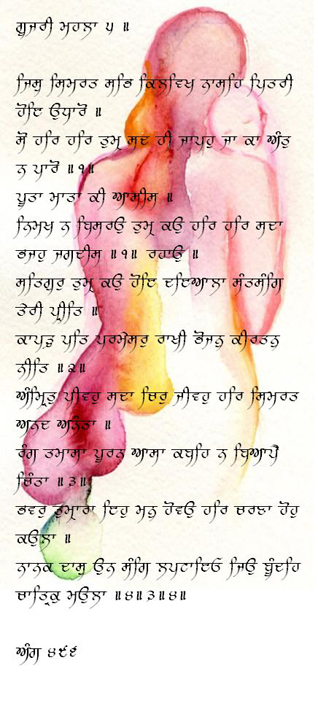 ਗੂਜਰੀ ਮਹਲਾ ੫ ॥
ਜਿਸੁ ਸਿਮਰਤ ਸਭਿ ਕਿਲਵਿਖ ਨਾਸਹਿ ਪਿਤਰੀ
ਹੋਇ ਉਧਾਰੋ ॥
ਸੋ ਹਰਿ ਹਰਿ ਤੁਮ੍ਹ ਸਦ ਹੀ ਜਾਪਹੁ ਜਾ ਕਾ ਅੰਤੁ
ਨ ਪਾਰੋ ॥੧॥
ਪੂਤਾ ਮਾਤਾ ਕੀ ਆਸੀਸ ॥
ਨਿਮਖ ਨ ਬਿਸਰਉ ਤੁਮ੍ਹ ਕਉ ਹਰਿ ਹਰਿ ਸਦਾ
ਭਜਹੁ ਜਗਦੀਸ ॥੧॥ ਰਹਾਉ ॥
ਸਤਿਗੁਰੁ ਤੁਮ੍ਹ ਕਉ ਹੋਇ ਦਇਆਲਾ ਸੰਤਸੰਗਿ
ਤੇਰੀ ਪ੍ਰੀਤਿ ॥
ਕਾਪੜੁ ਪਤਿ ਪਰਮੇਸਰੁ ਰਾਖੀ ਭੋਜਨੁ ਕੀਰਤਨੁ
ਨੀਤਿ ॥੨॥
ਅੰਮ੍ਰਿਤੁ ਪੀਵਹੁ ਸਦਾ ਚਿਰੁ ਜੀਵਹੁ ਹਰਿ ਸਿਮਰਤ
ਅਨਦ ਅਨੰਤਾ ॥
ਰੰਗ ਤਮਾਸਾ ਪੂਰਨ ਆਸਾ ਕਬਹਿ ਨ ਬਿਆਪੈ
ਚਿੰਤਾ ॥੩॥
ਭਵਰੁ ਤੁਮ੍ਹਾਰਾ ਇਹੁ ਮਨੁ ਹੋਵਉ ਹਰਿ ਚਰਣਾ ਹੋਹੁ
ਕਉਲਾ ॥
ਨਾਨਕ ਦਾਸੁ ਉਨ ਸੰਗਿ ਲਪਟਾਇਓ ਜਿਉ ਬੂੰਦਹਿ
ਚਾਤ੍ਰਿਕੁ ਮਉਲਾ ॥੪॥੩॥੪॥
ਅੰਗ ੪੯੬